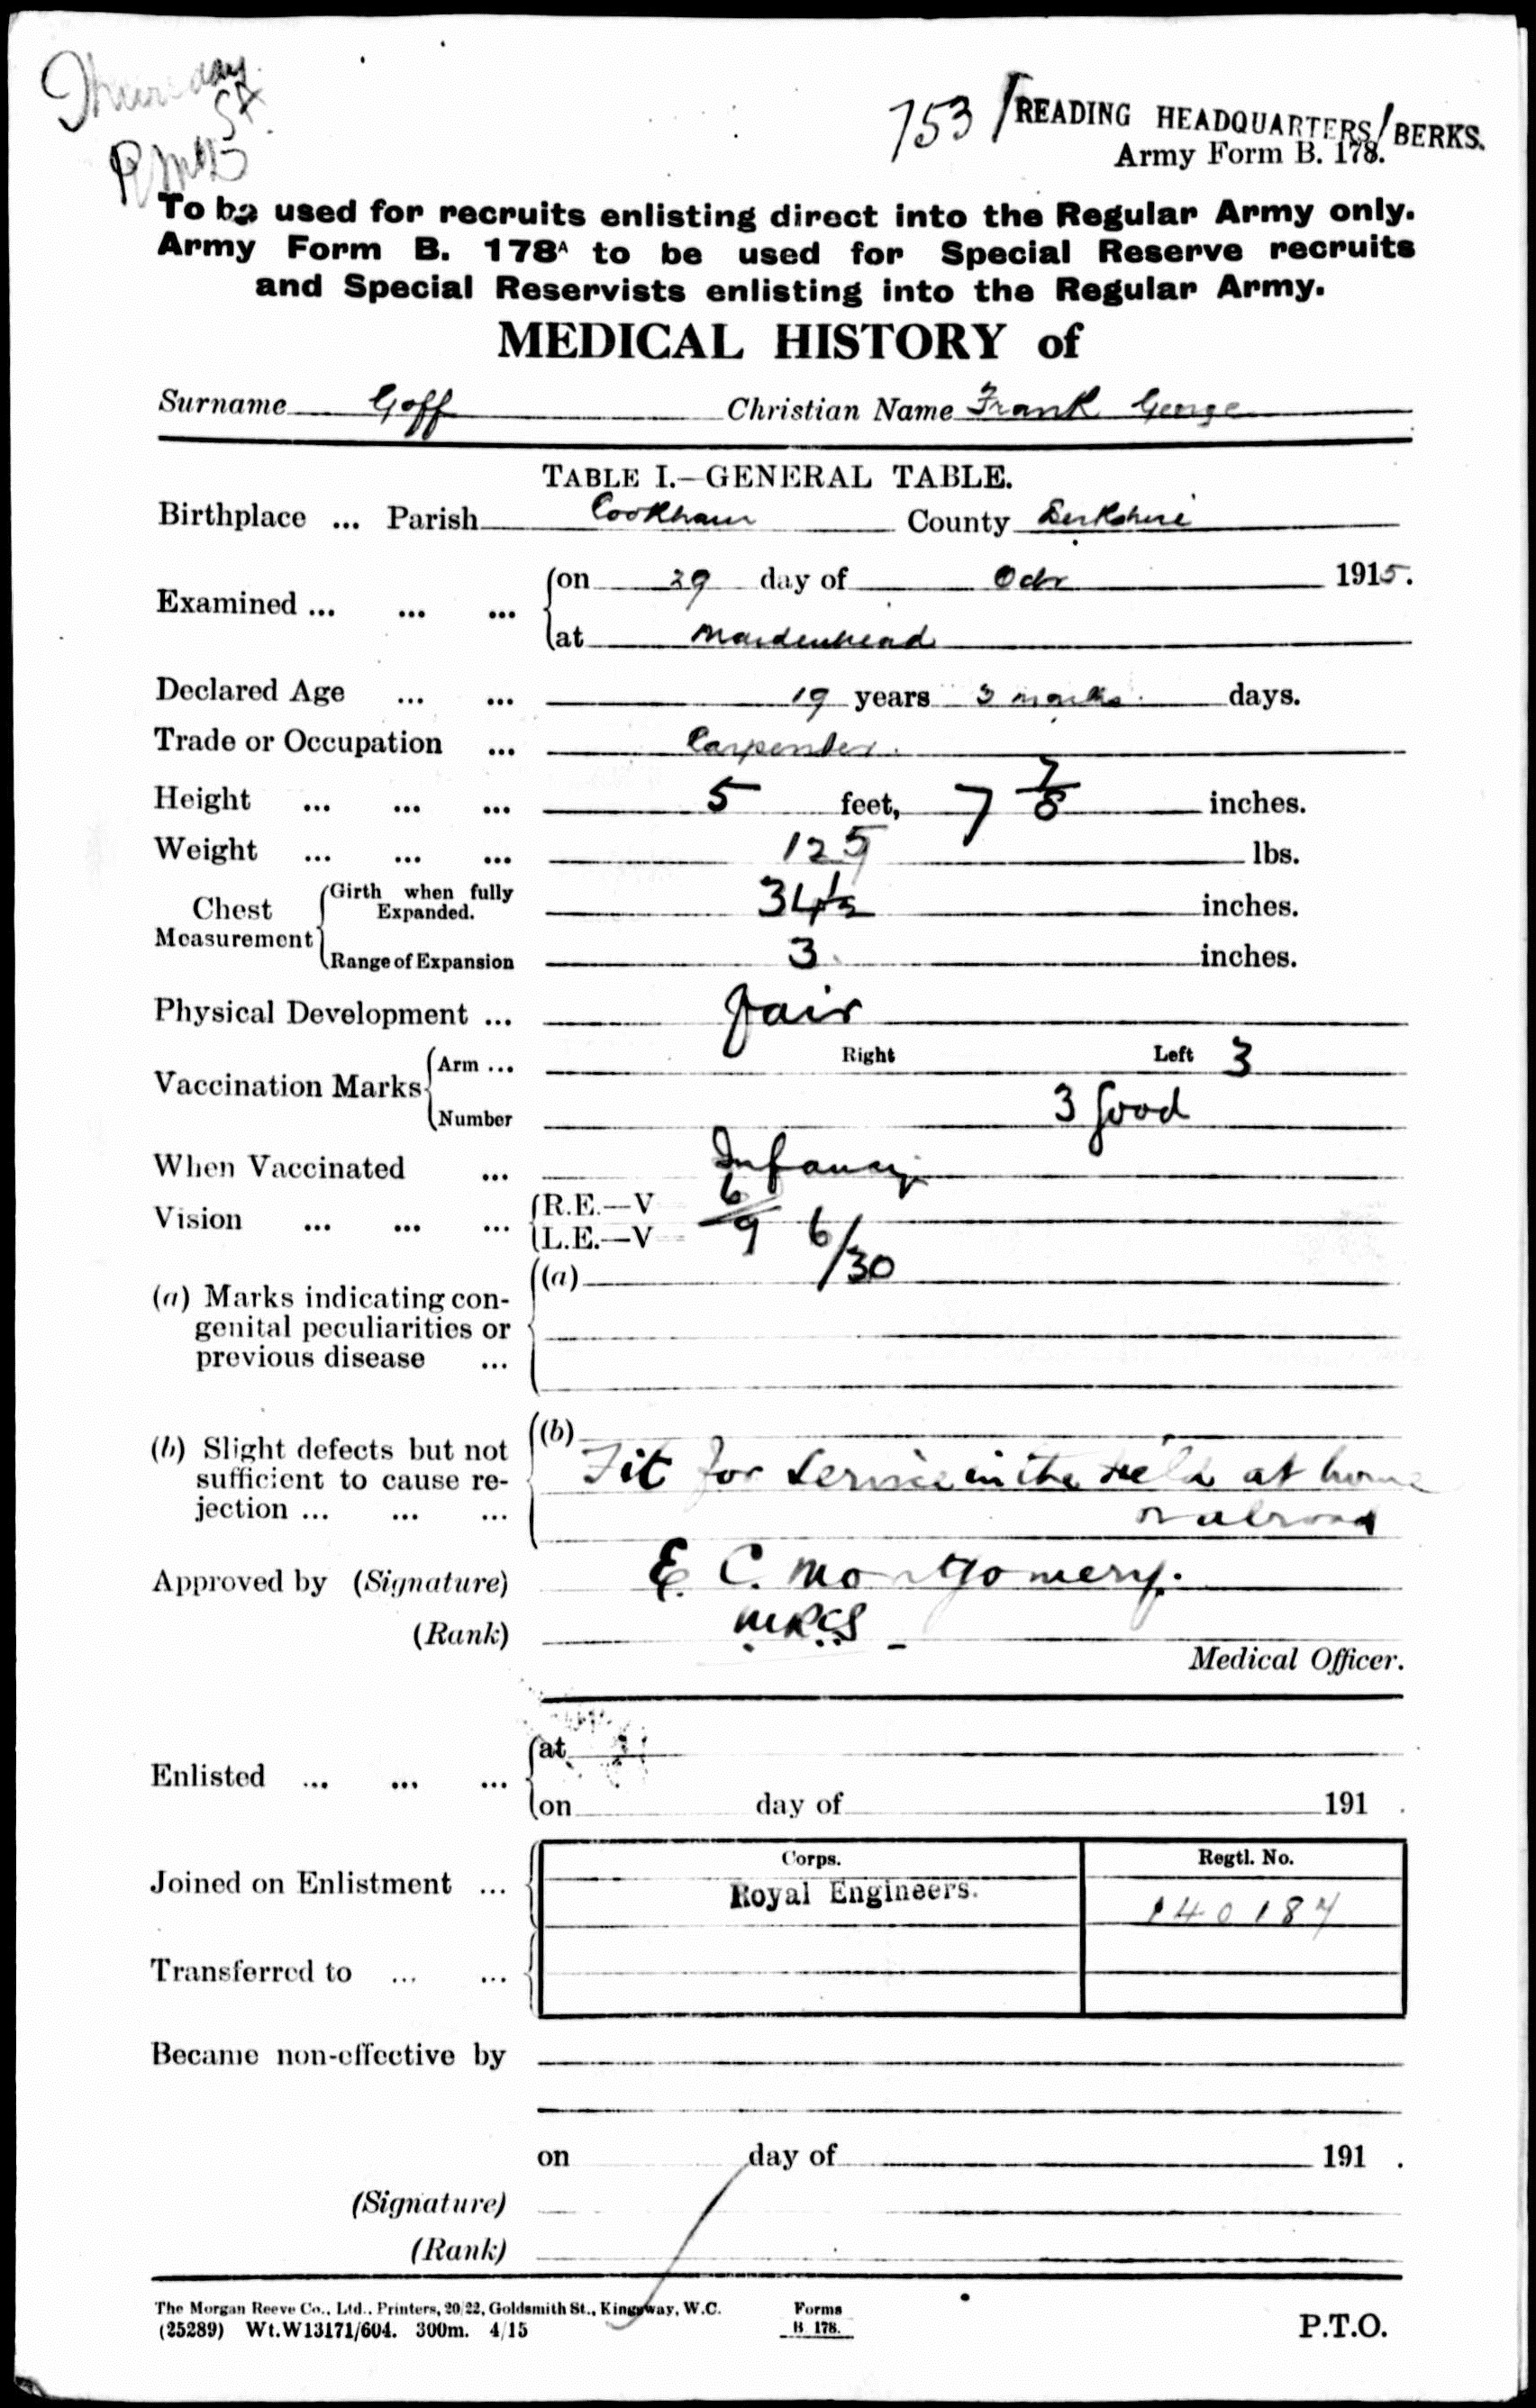 Thursday
753 / READING HEADQUARTERS / BERKS.
Army Form B. 178.
To be used for recruits enlisting direct into the Regular Army only.
Army Form B. 178A to be used for Special Reserve recruits
and Special Reservists enlisting into the Regular Army.
MEDICAL HISTORY of
Surname Goff Christian Name Frank George
TABLE I.—GENERAL TABLE.
Birthplace ... Parish Cookham County Berkshire
Examined ... ... ... on 29 day of Octr 1915.
at Maidenhead
Declared Age ... ... 19 years 3 months days.
Trade or Occupation ... Carpenter.
Height ... ... ... 5 feet, 7 7/8 inches.
Weight ... ... ... 125 lbs.
Chest Measurement Girth when fully Expanded. 34 1/2 inches.
Range of Expansion 3 inches.
Physical Development ... fair
Vaccination Marks Arm ... Right Left 3
Number 3 Good
When Vaccinated ... Infancy
Vision ... ... ... R.E.—V 6/9
L.E.—V 6/30
(a) Marks indicating con- (a)
genital peculiarities or
previous disease ...
(b) Slight defects but not (b)
sufficient to cause re- Fit for Service in the field at home
jection ... ... ... or abroad
Approved by (Signature) E. C. Montgomery.
(Rank) MRCS
Medical Officer.
Enlisted ... ... ... at
on day of 191 .
Corps. Regtl. No.
Joined on Enlistment ... Royal Engineers. 140187
Transferred to ... ...
Became non-effective by
on day of 191 .
(Signature)
(Rank)
The Morgan Reeve Co., Ltd., Printers, 20/22, Goldsmith St., Kingsway, W.C. Forms
(25289) Wt.W13171/604. 300m. 4/15 B 178.
P.T.O.